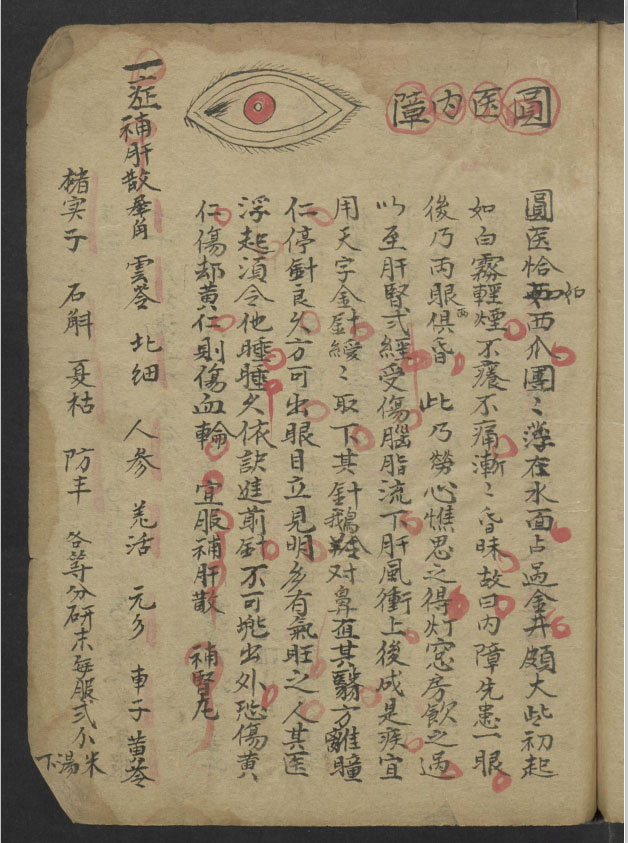 圓医内障
圓医恰如西爪團〻浮在水面占過金井頗大些初起
如白霧輕煙不癢不痛漸〻昏昧故曰内障先患一眼
後乃両眼俱昏 此乃勞心憔思之得灯窓房飲之過
以至肝腎弍經受傷腦脂流下肝風衝上後成是疾宜
用天字金針緩〻取下其針鵝對鼻直其翳方離瞳
仁停針良久方可出眼目立見明 有氣旺之人其医
浮起須令他睡睡久依訣進前針不可挑出外恐傷黄
仁傷却黄仁則傷血輪 宜服補肝散 補腎丸
一症補肝散 角 雲苓 北細 人参 羌活 元 車子 黄芩
楮实子 石斛 夏枯 防丰 各等分研末每服弍分米湯下